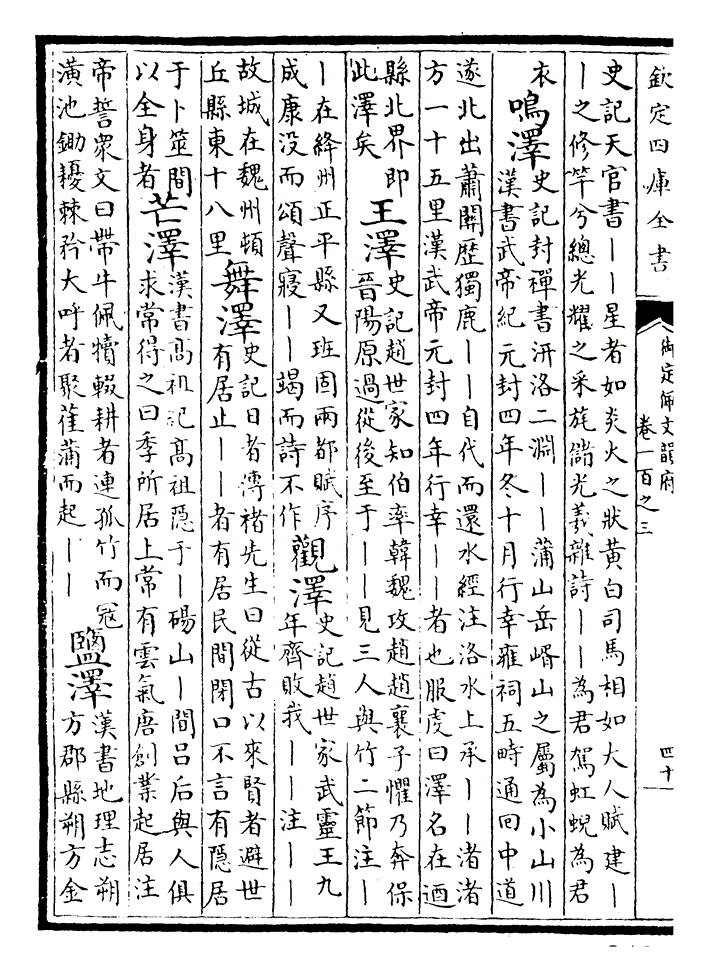 欽定四庫全書
御定佩文韻府
卷一百之三
四十一
史記天官書丨丨星者如炎火之狀黄白司馬相如大人賦建丨
丨之修竿兮總光耀之采旄儲光羲雜詩丨丨為君駕虹蜺為君
衣
鳴澤
史記封禪書汧洛二淵丨丨蒲山岳嶞山之屬為小山川
漢書武帝紀元封四年冬十月行幸雍祠五畤通回中道
遂北出蕭關歷獨鹿丨丨自代而還水經注洛水上承丨丨渚渚
方一十五里漢武帝元封四年行幸丨丨者也服虔曰澤名在迺
縣北界即
此澤矣
王澤
史記趙世家知伯率韓魏攻趙趙襄子懼乃奔保
晉陽原過從後至于丨丨見三人與竹二節注丨
丨在絳州正平縣又班固兩都賦序
成康没而頌聲寢丨丨竭而詩不作
觀澤
史記趙世家武靈王九
年齊敗我丨丨注丨丨
故城在魏州頓
丘縣東十八里
舞澤
史記日者傳褚先生曰從古以來賢者避世
有居止丨丨者有居民間閉口不言有隱居
于卜筮間
以全身者
芒澤
漢書髙祖記髙祖隱于丨碭山丨間吕后與人俱
求常得之曰季所居上常有雲氣唐創業起居注
帝誓衆文曰帶牛佩犢輟耕者連孤竹而冦
潢池鋤耰棘矜大呼者聚萑蒲而起丨丨
鹽澤
漢書地理志朔
方郡縣朔方金